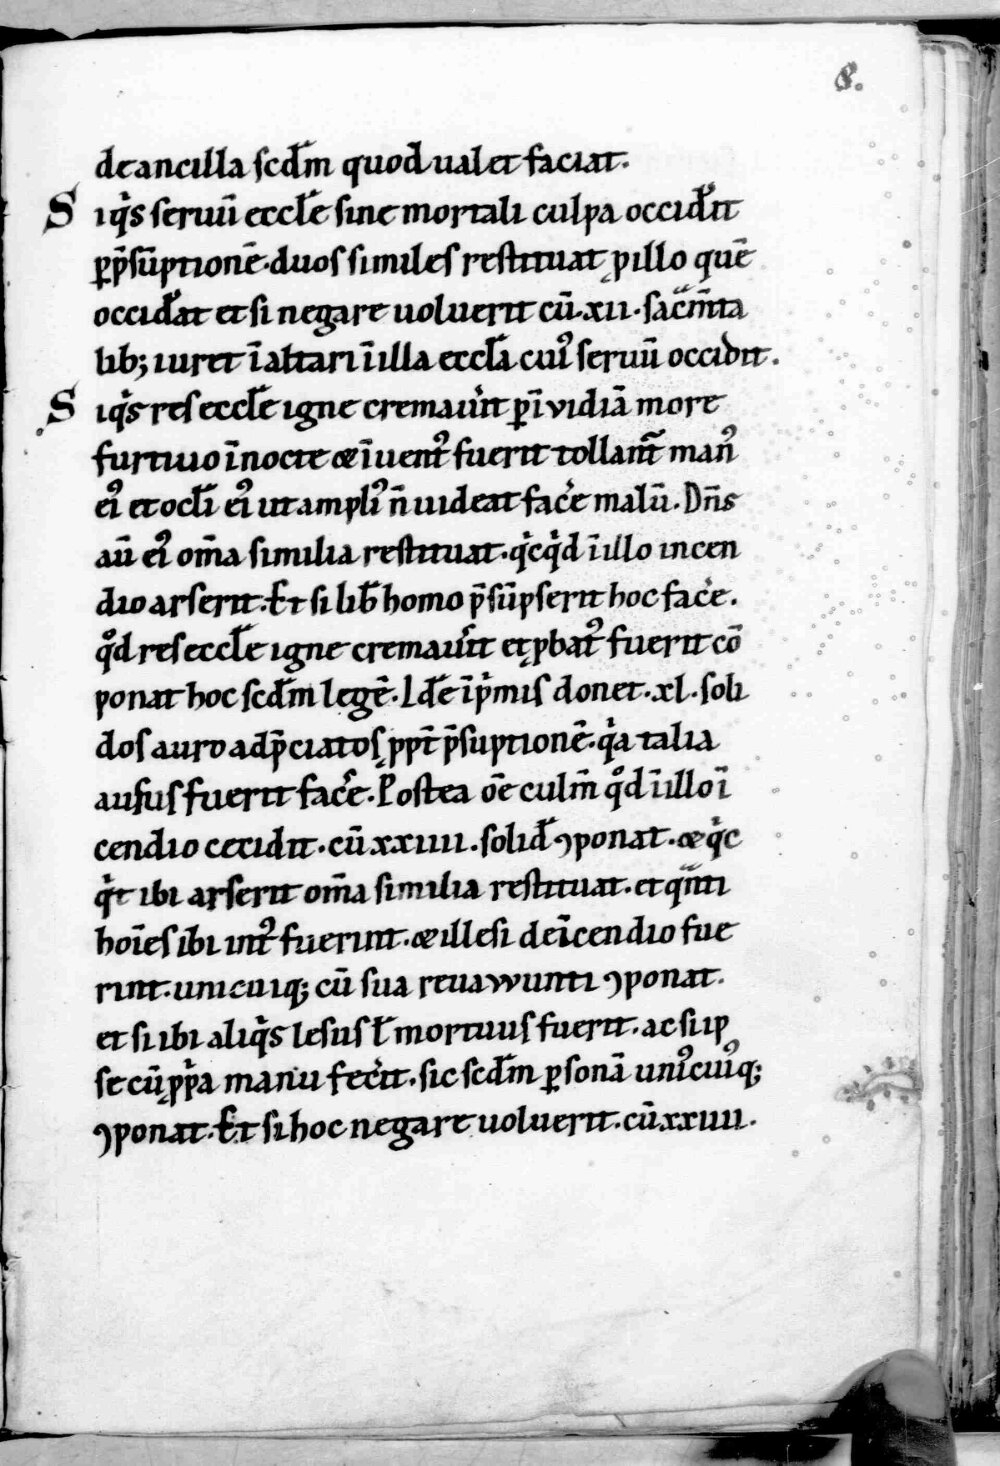 8.
de ancilla scdm̄ quod ualet faciat.
Siq̇s seruū eccłe sine mortali culpa occiderit
ꝑp̄sūptionē. duos similes restituat ꝓ illo quē
occiderat et si negare uoluerit cū. xii. sacm̄ta
lib; iuret ī altari ī illa eccła cui᾽ seruū occidit.
Siq̇s res eccłe igne cremauerit ꝑ īvidiā more
furtiuo ī nocte & īuent᾽ fuerit tollant̄ man᾽
ei᾽ et ocłi ei᾽ ut ampli᾽ n̄ uideat facere malū. Dn̄s
aū ei᾽ om̄a similia restituat. q̇cq̇d ī illo incen
dio arserit. Et si lib̄ homo p̄sūpserit hoc facere.
qͦd res eccłe igne cremauerit et ꝓbat᾽ fuerit cō
ponat hoc scdm̄ legē. Ide īp̄mis donet. xl. soli
dos auro adp̄ciatos ꝓpt̄ p̄suptionē. q̇a talia
ausus fuerit facere. Postea oēm culm̄ qͦd ī illo ī
cendio cecidit. cū xxiiii. solid̄ ꝯponat. & q̇c
q̇t ibi arserit om̄a similia restituat. et qn̄ti
hoīes ibi int᾽ fuerint. & illesi de īcendio fue
rint. unicuiq; cū sua revawunti ꝯponat.
et si ibi aliq̇s lesus ł mortuus fuerit. ac si ip
se cū ꝓp̄a manu fecerit. sic scdm̄ ꝑsonā uni᾽cui᾽q;
ꝯponat. Et si hoc negare uoluerit. cū xxiiii.